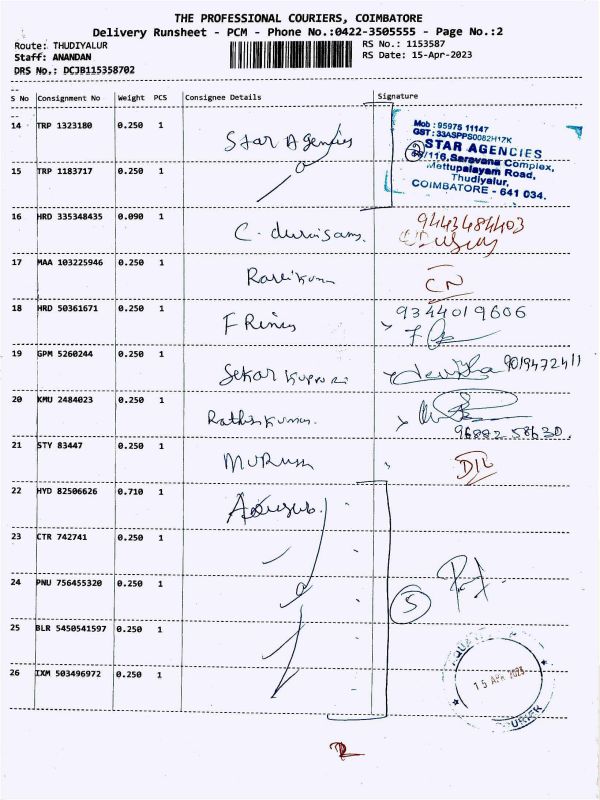 THE PROFESSIONAL COURIERS, COIMBATORE
Delivery Runsheet - PCM - Phone No.:0422-3505555 - Page No.:2
Route: THUDIYALUR
RS No.: 1153587
Staff: ANANDAN
RS Date: 15-Apr-2023
DRS No.: DCJB115358702
S No Consignment No Weight PCS Consignee Details Signature
14 TRP 1323180 0.250 1 Star Agencies
Mob : 95975 11147
GST : 33ASPPS0082H1ZK
STAR AGENCIES
/116, Saravana Complex,
Mettupalayam Road,
Thudiyalur,
COIMBATORE - 641 034.
15 TRP 1183717 0.250 1
16 HRD 335348435 0.090 1 C. 9443484403
17 MAA 103225946 0.250 1 CN
18 HRD 50361671 0.250 1 9344019606
19 GPM 5260244 0.250 1 Sekar 9019472411
20 KMU 2484023 0.250 1
96882 58630.
21 STY 83447 0.250 1 DIL
22 HYD 82506626 0.710 1
23 CTR 742741 0.250 1
24 PNU 756455320 0.250 1 5
25 BLR 5450541597 0.250 1
26 IXM 503496972 0.250 1 15 APR 2023